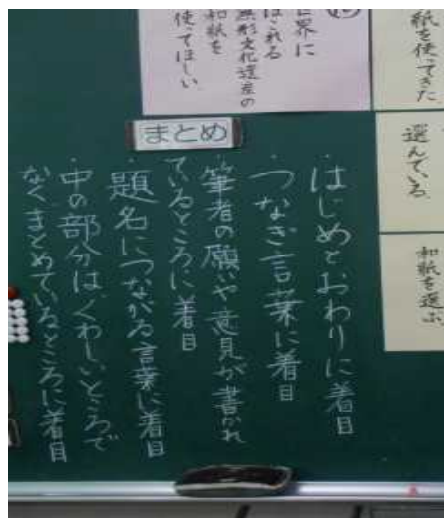 紙を使ってきた
選んでいる
和紙を選ぶ
世界に
ほこれる
無形文化遺産の
和紙を
使ってほしい
まとめ
・はじめとおわりに着目
・つなぎ言葉に着目
・筆者の願いや意見が書かれ
ているところに着目
・題名につながる言葉に着目
・中の部分は、くわしいところで
なくまとめているところに着目